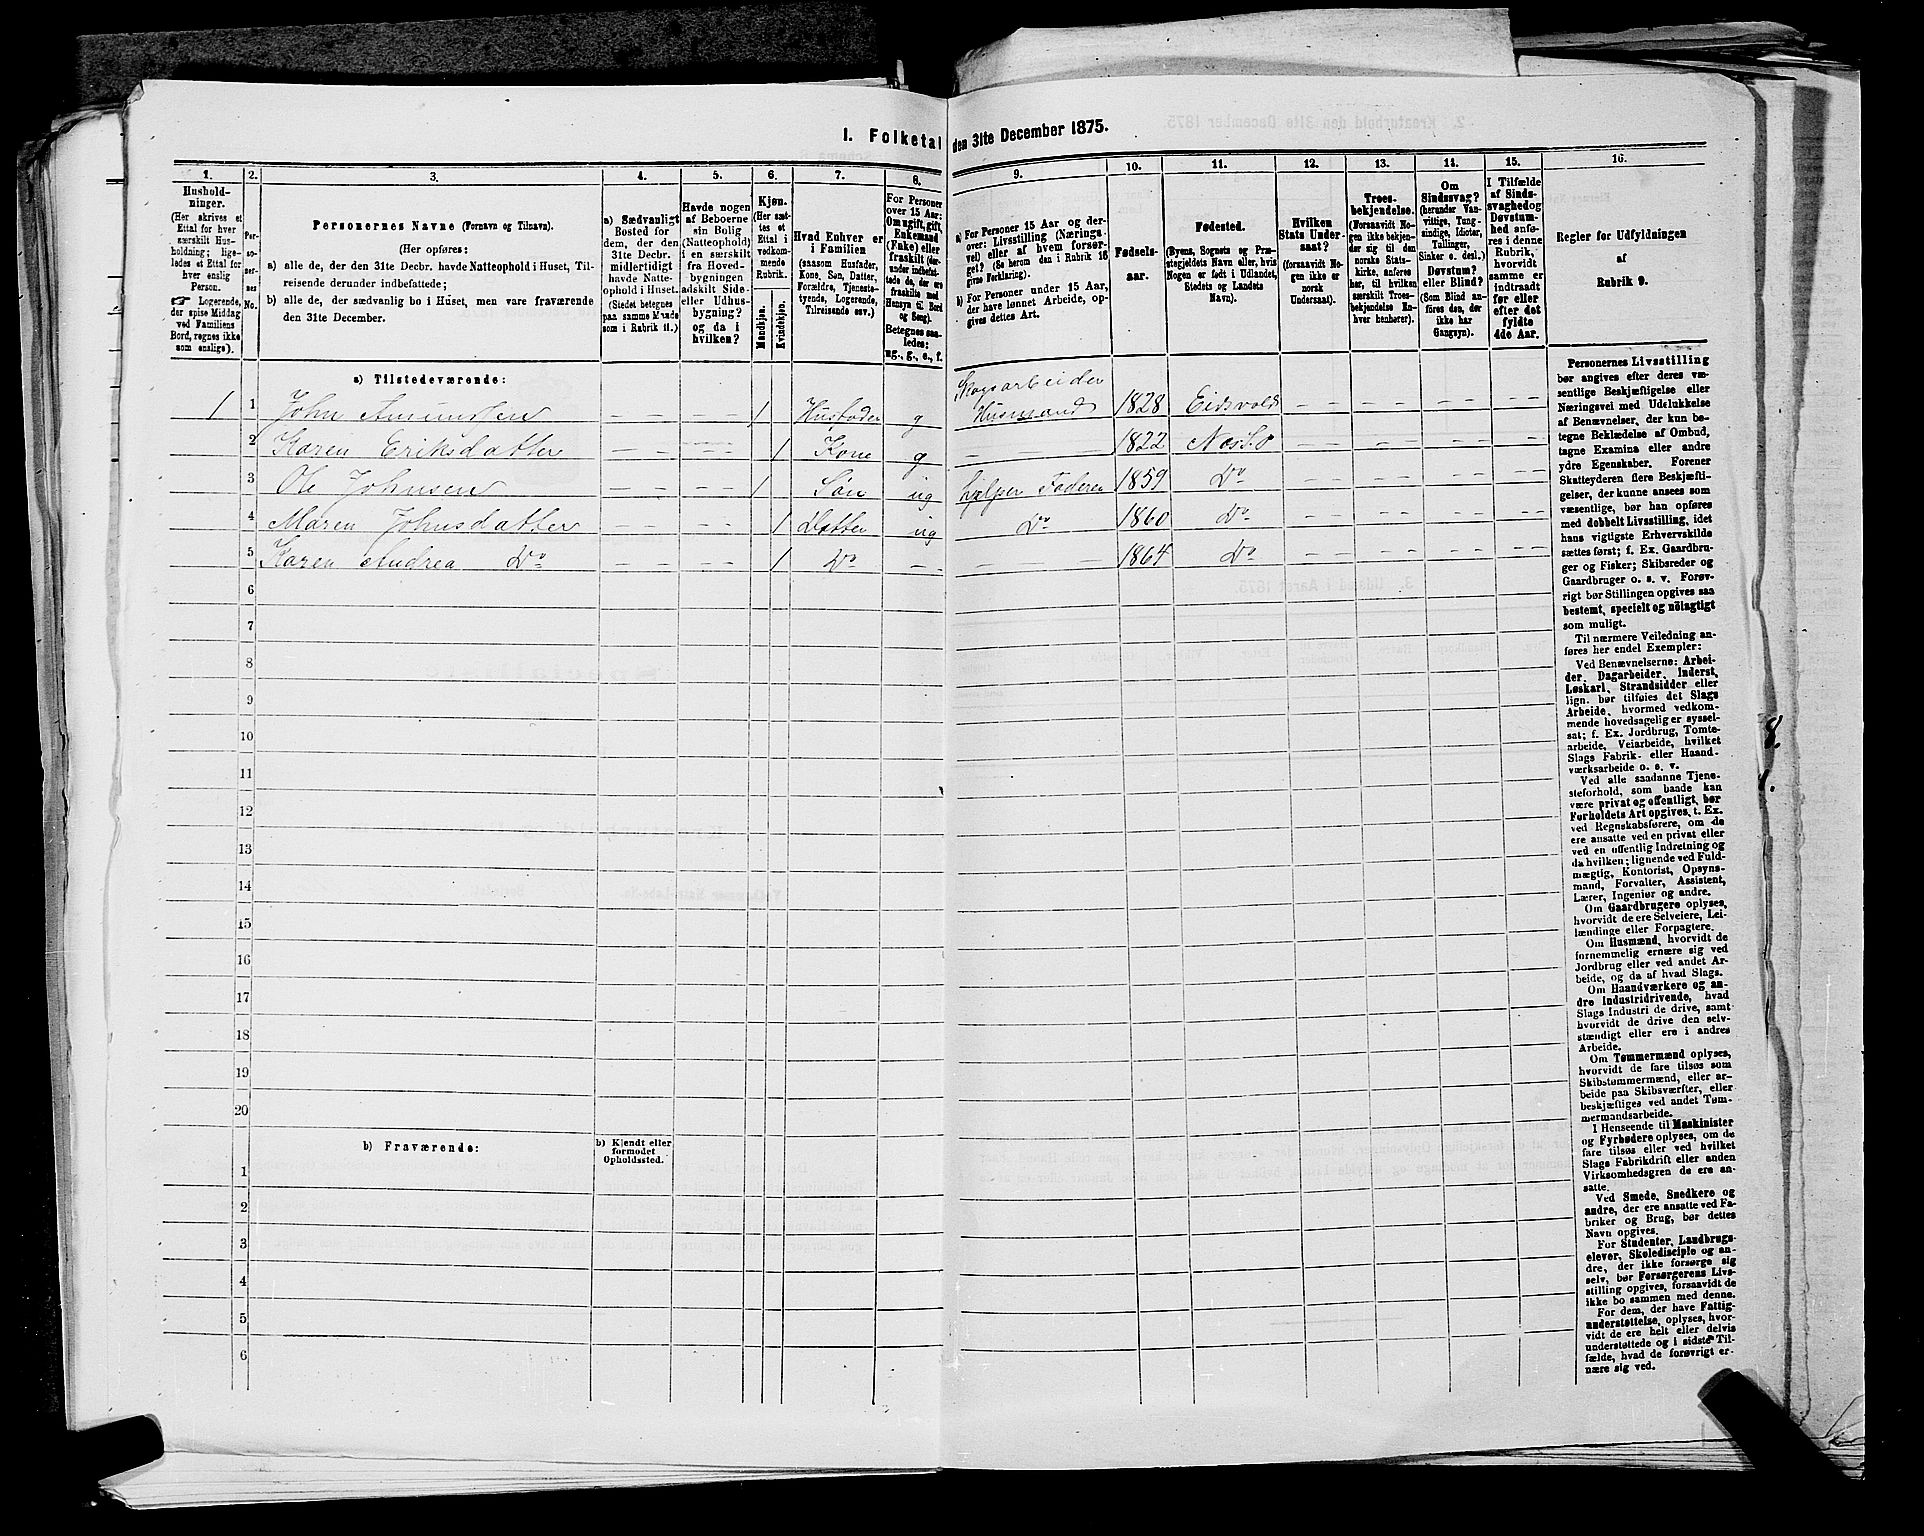 I. Folketal den 31te December 1875.
1. 2. 3. 4. 5. 6. 7. 8. 9. 10. 11. 12. 13. 14. 15. 16.
Hushold-
ninger.
(Her skrives et
Ettal for hver
særskilt Hus-
holdning; lige-
ledes et Ettal for
hver enslig
Person.
☞ Logerende,
der spise Middag
ved Familiens
Bord, regnes ikke
som enslige).
Per-
so-
ner-
nes
No.
Personernes Navne (Fornavn og Tilnavn).
(Her opføres:
a) alle de, der den 31te Decbr. havde Natteophold i Huset, Til-
reisende derunder indbefattede;
b) alle de, der sædvanlig bo i Huset, men vare fraværende
den 31te December.
a) Sædvanligt
Bosted for
dem, der den
31te Decbr.
midlertidigt
havde Natte-
ophold i Huset.
(Stedet betegnes
paa samme Maade
som i Rubrik 11.)
Havde nogen
af Beboerne
sin Bolig
(Natteophold)
i en særskilt
fra Hoved-
bygningen
adskilt Side-
eller Udhus-
bygning?
og da i
hvilken?
Kjøn.
(Her sæt-
tes et
Ettal i
vedkom-
mende
Rubrik.
Mandkjøn.
Kvindekjøn.
Hvad Enhver er
i Familien
(saasom Husfader,
Kone, Søn, Datter,
Forældre, Tjeneste-
tyende, Logerende,
Tilreisende osv.)
For Personer
over 15 Aar:
Om ugift, gift,
Enkemand
(Enke) eller
fraskilt (der-
under indbefat-
tede de, der ere
fraskilte med
Hensyn til Bord
og Seng).
Betegnes saa-
ledes:
ug., g., e., f.
a) For Personer 15 Aar og der-
over: Livsstilling (Nærings-
vei) eller af hvem forsør-
get? (Se herom den i Rubrik 16
givne Forklaring).
b) For Personer under 15 Aar,
der have lønnet Arbeide, op-
gives dettes Art.
Fødsels-
aar.
Fødested.
(Byens, Sognets og Præ-
stegjeldets Navn eller, hvis
Nogen er født i Udlandet,
Stedets og Landets
Navn).
Hvilken
Stats Under-
saat?
(forsaavidt No-
gen ikke er
norsk
Undersaat).
Troes-
bekjendelse.
(Forsaavidt No-
gen ikke bekjen-
der sig til den
norske Stats-
kirke, anføres
her, til hvilken
særskilt Troes-
bekjendelse En-
hver henhører).
Om
Sindssvag?
(herunder Van-
vittige, Tung-
sindige, Idioter,
Tullinger,
Sinker o. desl.)
Døvstum?
eller Blind?
(Som Blind an-
føres den, der
ikke har
Gangsyn).
I Tilfælde
af Sinds-
svaghed og
Døvstum-
hed anfø-
res i denne
Rubrik,
hvorvidt
samme er
indtraadt
før eller
efter det
fyldte
4de Aar.
Regler for Udfyldningen
af
Rubrik 9.
a) Tilstedeværende:
1 1 John Amundsen – – – – 1 Husfader g Skogsarbeider Husmand 1828 Eidsvold – – – – – – – –
2 Karen Eriksdatter – – – – 1 Kone g – – – 1822 Næs S.o – – – – – – –
3 Ole Johnsen – – – – 1 Søn ug hjelper Faderen 1859 Do – – – – – – –
4 Maren Johnsdatter – – – – 1 Datter ug Do 1860 Do – – – – – – – –
5 Karen Andrea Do – – – – 1 Do – – – – 1864 Do – – – – – – – –
6
7
8
9
10
11
12
13
14
15
16
17
18
19
20
b) Fraværende:
b) Kjendt eller
formodet
Opholdssted.
1
2
3
4
5
6
Personernes Livsstilling
bør angives efter deres væ-
sentlige Beskjæftigelse eller
Næringsvei med Udelukkelse
af Benævnelser, der kun be-
tegne Beklædelse af Ombud,
tagne Examina eller andre
ydre Egenskaber. Forener
Skatteyderen flere Beskjæfti-
gelser, der kunne ansees som
væsentlige, bør han opføres
med dobbelt Livsstilling, idet
hans vigtigste Erhvervskilde
sættes først; f. Ex. Gaardbru-
ger og Fisker; Skibsreder og
Gaardbruger o. s. v. Forøv-
rigt bør Stillingen opgives saa
bestemt, specielt og nøiagtigt
som muligt.
Til nærmere Veiledning an-
føres her endel Exempler:
Ved Benævnelserne: Arbei-
der, Dagarbeider, Inderst,
Løskarl, Strandsidder eller
lign. bør tilføies det Slags
Arbeide, hvormed vedkom-
mende hovedsagelig er syssel-
sat; f. Ex. Jordbrug, Tomte-
arbeide, Veiarbeide, hvilket
Slags Fabrik- eller Haand-
værksarbeide o. s. v.
Ved alle saadanne Tjene-
steforhold, som baade kan
være privat og offentligt, bør
Forholdets Art opgives, t. Ex.
ved Regnskabsførere, om de
ere ansatte ved en privat eller
ved en offentlig Indretning og
da hvilken; lignende ved Fuld-
mægtig, Kontorist, Opsyns-
mand, Forvalter, Assistent,
Lærer, Ingeniør og andre.
Om Gaardbrugere oplyses,
hvorvidt de ere Selveiere, Lei-
lændinge eller Forpagtere.
Om Husmænd, hvorvidt de
fornemmelig ernære sig ved
Jordbrug eller ved andet Ar-
beide, og da af hvad Slags.
Om Haandværkere og an-
dre Industridrivende, hvad
Slags Industri de drive, samt
hvorvidt de drive den selv-
stændigt eller ere i andres
Arbeide.
Om Tømmermænd oplyses,
hvorvidt de fare tilsøs som
Skibstømmermænd, eller ar-
beide paa Skibsværfter, eller
beskjæftiges ved andet Tøm-
mermandsarbeide.
I Henseende til Maskinister
og Fyrbødere oplyses, om de
fare tilsøs eller ved hvilket
Slags Fabrikdrift eller anden
Virksomhedsgren de ere an-
satte.
Ved Smede, Snedkere og
andre, der ere ansatte ved Fa-
briker og Brug, bør dettes
Navn opgives.
For Studenter, Landbrugs-
elever, Skoledisciple og an-
dre, der ikke forsørge sig
selv, bør Forsørgerens Livs-
stilling opgives, forsaavidt de
ikke bo sammen med denne.
For dem, der have Fattig-
understøttelse, oplyses, hvor-
vidt de ere helt eller delvis
understøttede og i sidste Til-
fælde, hvad de forøvrigt er-
nære sig ved.